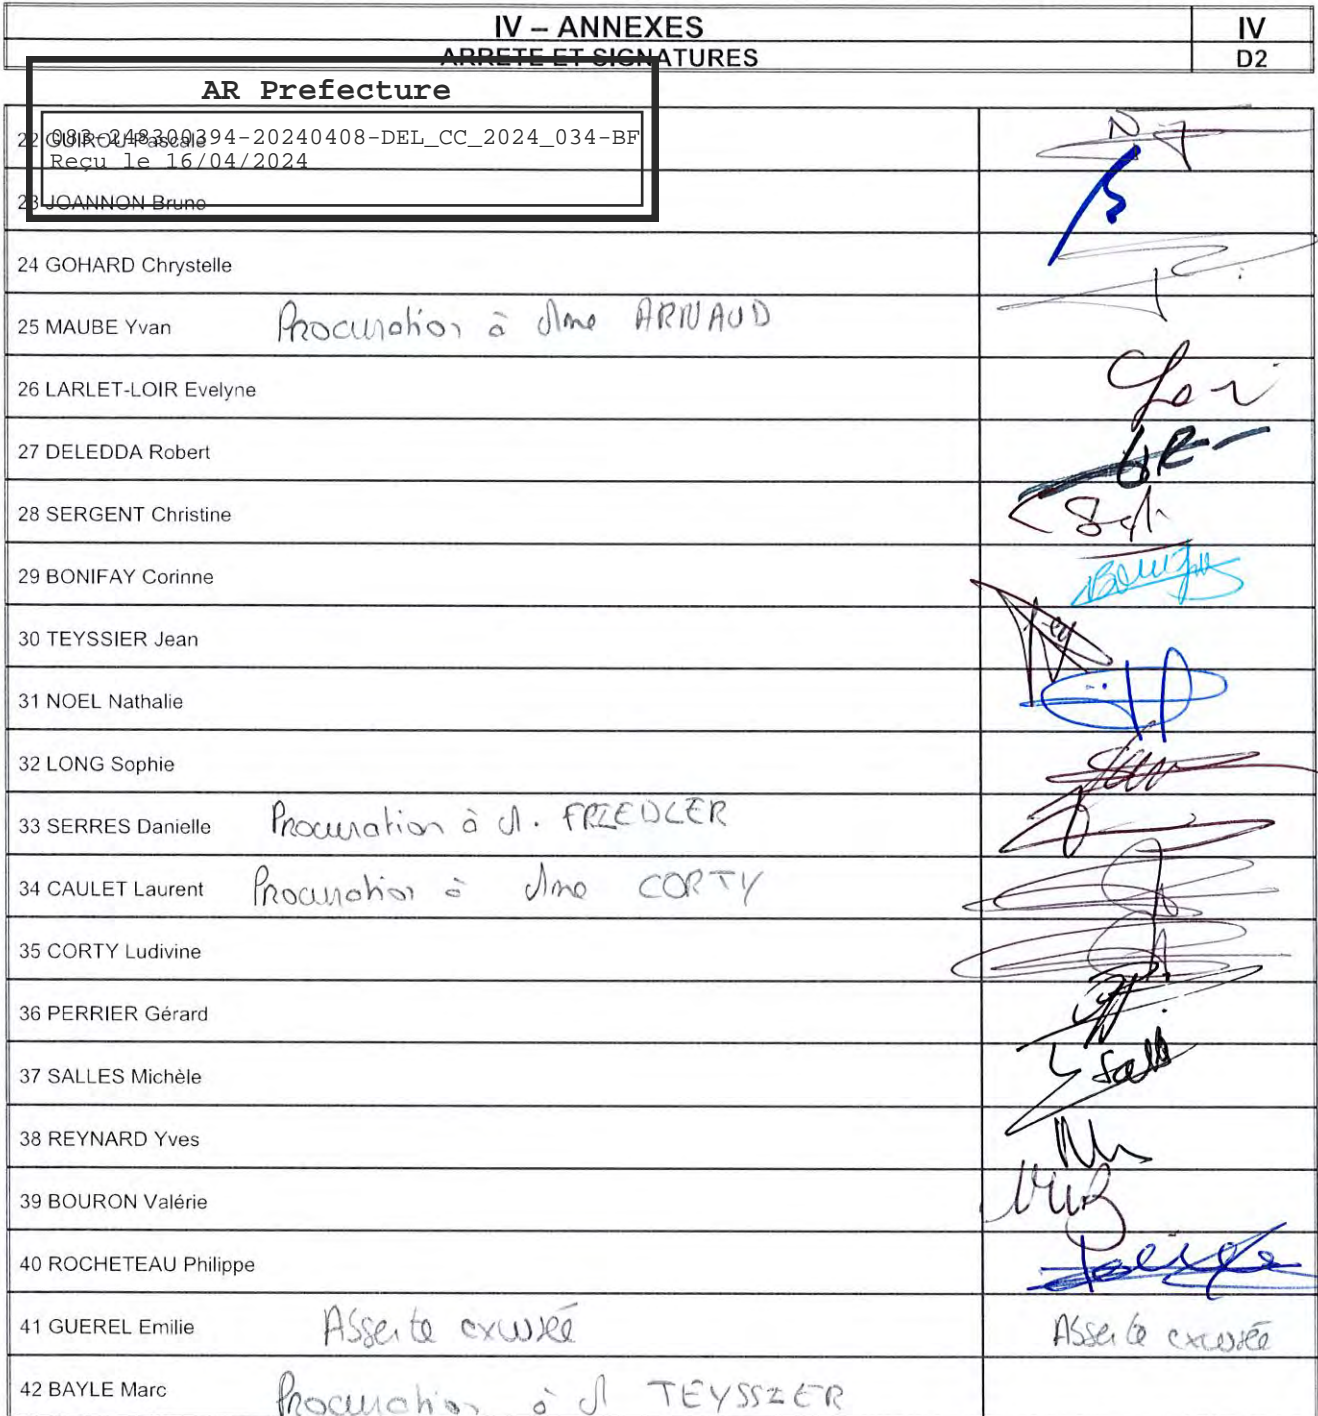 IV – ANNEXES IV
ARRETE ET SIGNATURES D2
AR Prefecture
083-248300394-20240408-DEL_CC_2024_034-BF
Reçu le 16/04/2024
22 GUIROU Pascale
23 JOANNON Bruno
24 GOHARD Chrystelle
25 MAUBE Yvan Procuration à Mme ARNAUD
26 LARLET-LOIR Evelyne
27 DELEDDA Robert
28 SERGENT Christine
29 BONIFAY Corinne
30 TEYSSIER Jean
31 NOEL Nathalie
32 LONG Sophie
33 SERRES Danielle Procuration à M. FRIEDLER
34 CAULET Laurent Procuration à Mme CORTY
35 CORTY Ludivine
36 PERRIER Gérard
37 SALLES Michèle
38 REYNARD Yves
39 BOURON Valérie
40 ROCHETEAU Philippe
41 GUEREL Emilie Absente excusée Absente excusée
42 BAYLE Marc Procuration à M TEYSSIER